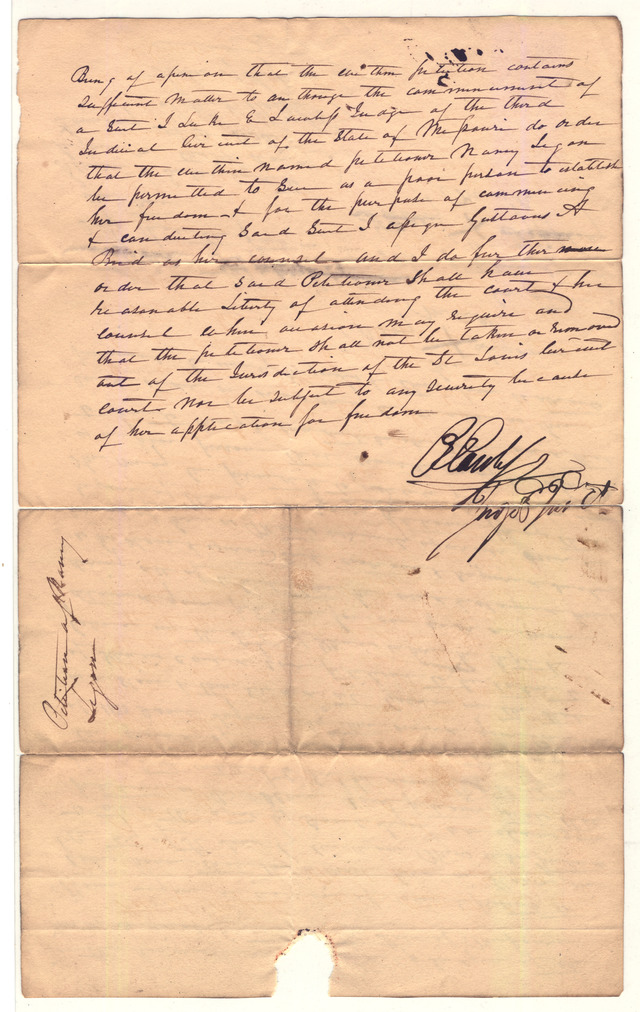 Being of opinion that the within petition contains
sufficient matter to authorize the commencement of
a Suit I Luke E Lawless Judge of the third
Judicial Circuit of the State of Missouri do order
that the within named petitioner Nancy Ligon
be permitted to Sue as a poor person to establish
her freedom & for the purpose of commencing
& conducting Said Suit I assign Gustavus A
Bird as her counsel and I do further
order that said Petitioner Shall have
reasonable Liberty of attending the court & her
counsel when occasion may require and
that the petitioner shall not be taken or removed
out of the Jurisdiction of the St Louis Circuit
court Nor be subject to any severity because
of her application for freedom
L E Lawless
Petition of Nancy
Ligon